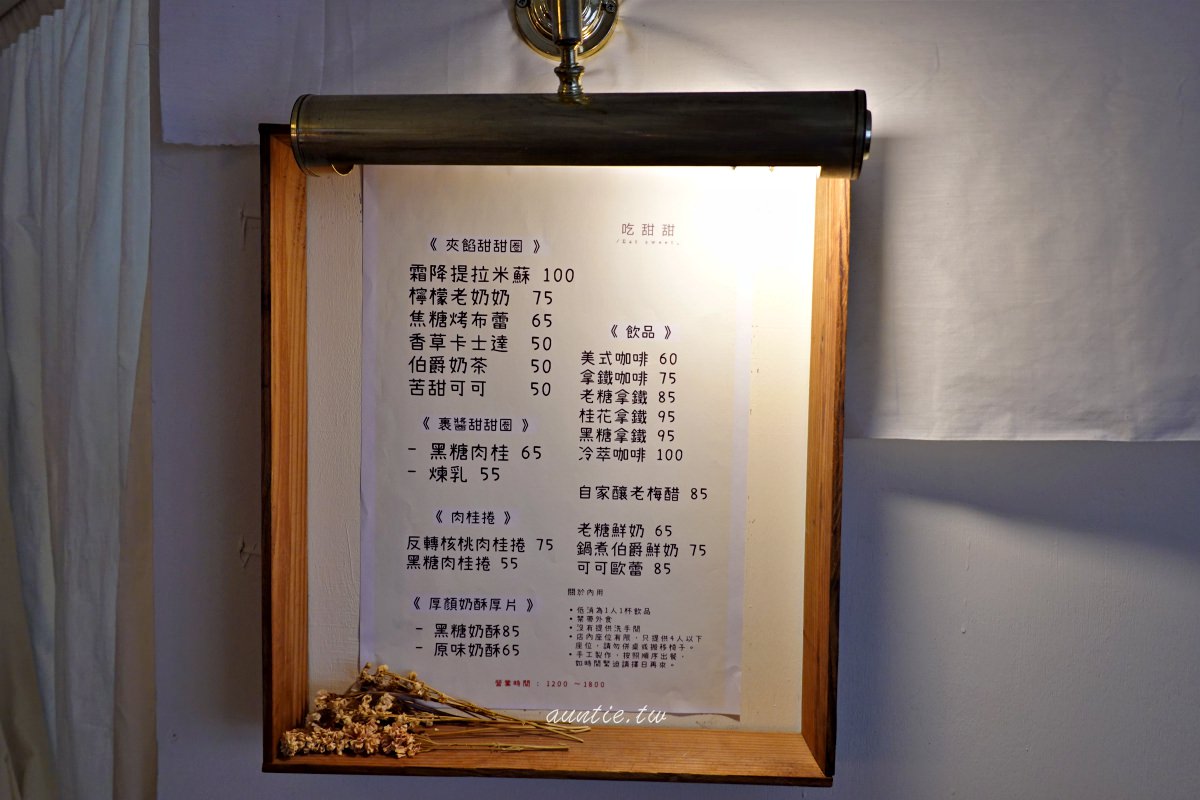 吃甜甜
/Eat sweet.
《 夾餡甜甜圈 》
霜降提拉米蘇 100
檸檬老奶奶 75
焦糖烤布蕾 65
香草卡士達 50
伯爵奶茶 50
苦甜可可 50
《 裹醬甜甜圈 》
- 黑糖肉桂 65
- 煉乳 55
《 肉桂捲 》
反轉核桃肉桂捲 75
黑糖肉桂捲 55
《 厚顏奶酥厚片 》
- 黑糖奶酥85
- 原味奶酥65
《 飲品 》
美式咖啡 60
拿鐵咖啡 75
老糖拿鐵 85
桂花拿鐵 95
黑糖拿鐵 95
冷萃咖啡 100
自家釀老梅醋 85
老糖鮮奶 65
鍋煮伯爵鮮奶 75
可可歐蕾 85
關於內用
• 低消為1人1杯飲品
• 禁帶外食
• 沒有提供洗手間
• 店內座位有限，只提供4人以下
座位，請勿併桌或搬移椅子。
• 手工製作，按照順序出餐，
如時間緊迫請擇日再來。
營業時間 : 1200 ~1800
auntie.tw